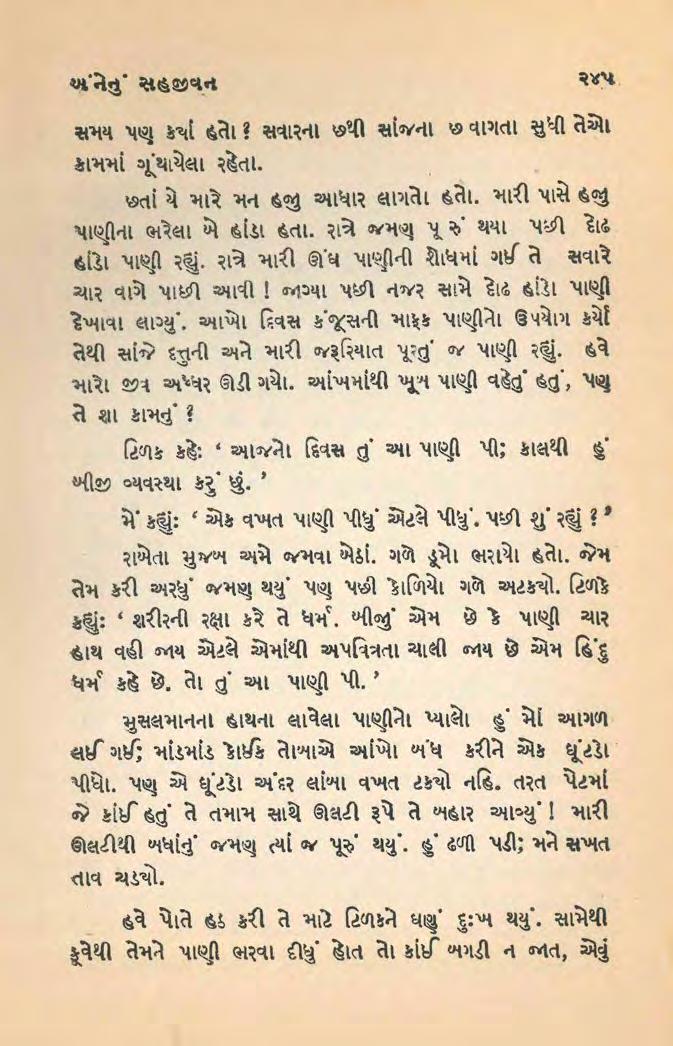 બંનેનું સહજીવન ૨૪૫
સમય પણ ક્યાં હતો? સવારના છથી સાંજના છ વાગતા સુધી તેઓ
કામમાં ગૂંથાયેલા રહેતા.
છતાં યે મારે મન હજી આધાર લાગતો હતો. મારી પાસે હજી
પાણીના ભરેલા બે હાંડા હતા. રાત્રે જમણ પૂરું થયા પછી દોઢ
હાંડો પાણી રહ્યું. રાત્રે મારી ઊંઘ પાણીની શોધમાં ગઈ તે સવારે
ચાર વાગે પાછી આવી! જાગ્યા પછી નજર સામે દોઢ હાંડો પાણી
દેખાવા લાગ્યું. આખો દિવસ કંજૂસની માફક પાણીનો ઉપયોગ કર્યો
તેથી સાંજે દત્તુની અને મારી જરૂરિયાત પૂરતું જ પાણી રહ્યું. હવે
મારો જીવ અધ્ધર ઊડી ગયો. આંખમાંથી ખૂબ પાણી વહેતું હતું, પણ
તે શા કામનું?
ટિળક કહે: ‘આજનો દિવસ તું આ પાણી પી; કાલથી હું
બીજી વ્યવસ્થા કરું છું.’
મેં કહ્યું: ‘એક વખત પાણી પીધું એટલે પીધું. પછી શું રહ્યું?’
રાબેતા મુજબ અમે જમવા બેઠાં. ગળે ડૂમો ભરાયો હતો. જેમ
તેમ કરી અરધું જમણ થયું પણ પછી કોળિયો ગળે અટક્યો. ટિળકે
કહ્યું: ‘શરીરની રક્ષા કરે તે ધર્મ. બીજું એમ છે કે પાણી ચાર
હાથ વહી જાય એટલે એમાંથી અપવિત્રતા ચાલી જાય છે એમ હિંદુ
ધર્મ કહે છે. તો તું આ પાણી પી.’
મુસલમાનના હાથના લાવેલા પાણીનો પ્યાલો હું મોં આગળ
લઈ ગઈ; માંડમાંડ કોઈક તોબાએ આંખો બંધ કરીને એક ઘૂંટડો
પીધો. પણ એ ઘૂંટડો અંદર લાંબા વખત ટક્યો નહિ. તરત પેટમાં
જે કાંઈ હતું તે તમામ સાથે ઊલટી રૂપે તે બહાર આવ્યું! મારી
ઊલટીથી બધાંનું જમણ ત્યાં જ પૂરું થયું. હું ઢળી પડી; મને સખત
તાવ ચડ્યો.
હવે પોતે હઠ કરી તે માટે ટિળકને ઘણું દુઃખ થયું. સામેથી
કૂવેથી તેમને પાણી ભરવા દીધું હોત તો કાંઈ બગડી ન જાત, એવું